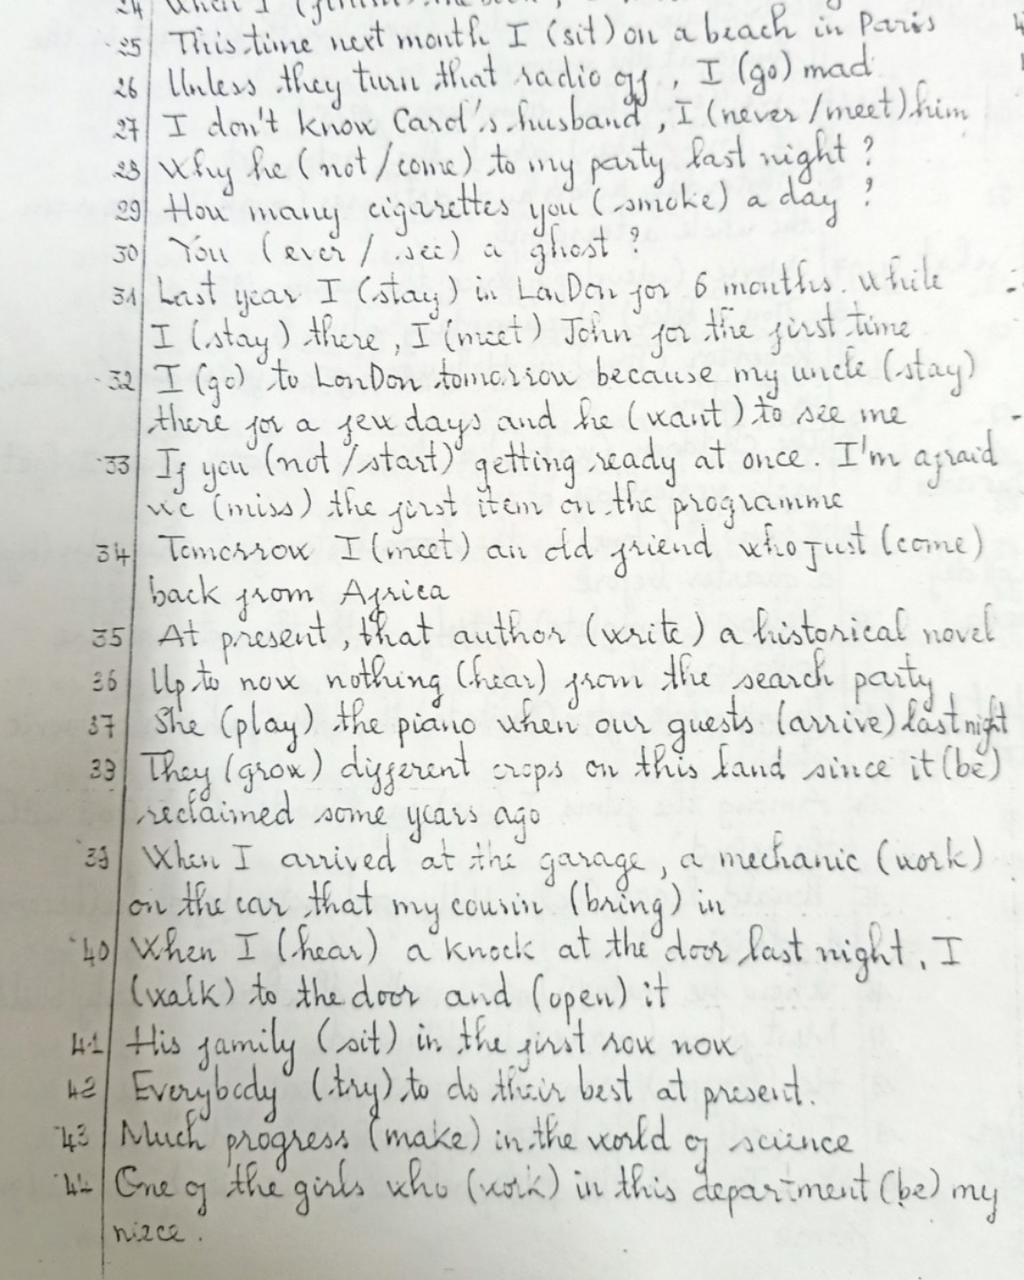 24 When I
25 This time next month I (sit) on a beach in Paris
26 Unless they turn that radio off, I (go) mad
27 I don't know Carol's husband, I (never/meet) him
28 Why he (not/come) to my party last night?
29 How many cigarettes you (smoke) a day?
30 You (ever/see) a ghost?
31 Last year I (stay) in LonDon for 6 months. While
I (stay) there, I (meet) John for the first time
32 I (go) to LonDon tomorrow because my uncle (stay)
there for a few days and he (want) to see me
33 If you (not/start) getting ready at once. I'm afraid
we (miss) the first item on the programme
34 Tomorrow I (meet) an old friend who just (come)
back from Africa
35 At present, that author (write) a historical novel
36 Up to now nothing (hear) from the search party
37 She (play) the piano when our guests (arrive) last night
38 They (grow) different crops on this land since it (be)
reclaimed some years ago
39 When I arrived at the garage, a mechanic (work)
on the car that my cousin (bring) in
40 When I (hear) a knock at the door last night, I
(walk) to the door and (open) it
41 His family (sit) in the first row now
42 Everybody (try) to do their best at present.
43 Much progress (make) in the world of science
44 One of the girls who (work) in this department (be) my
niece.